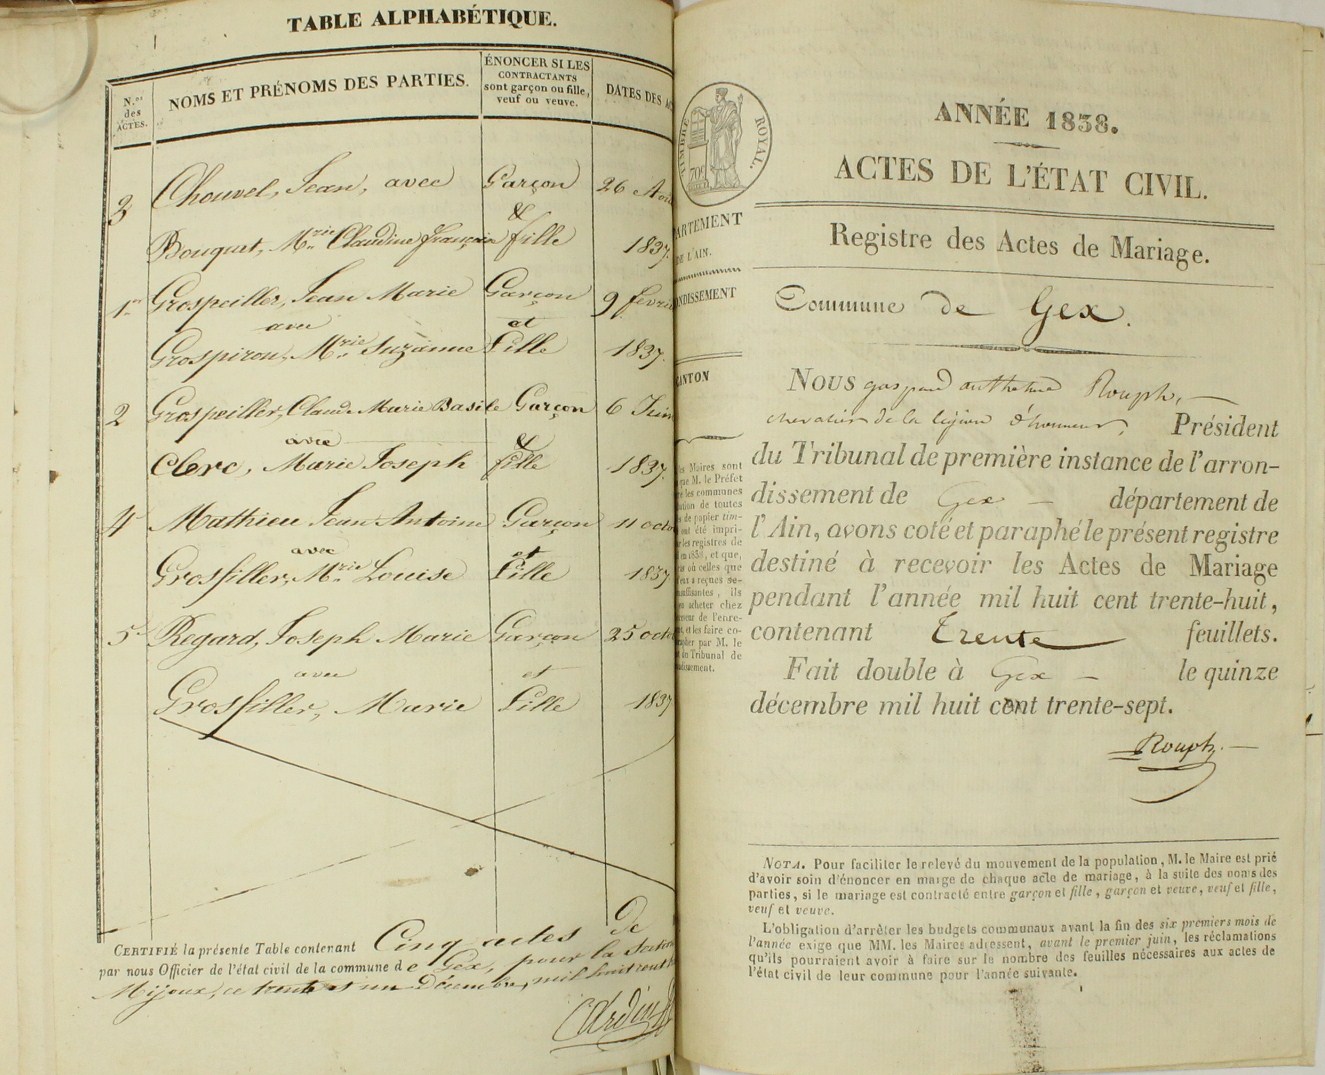 TABLE ALPHABÉTIQUE.
N.os des ACTES.
NOMS ET PRÉNOMS DES PARTIES.
ÉNONCER SI LES
CONTRACTANTS
sont garçon ou fille,
veuf ou veuve.
DATES DES AC
3 Chouvel, Jean, avec Garçon 26 Aou
&
Bouquet, Mrie Claudine françoise fille 1837.
1er Grospeiller, Jean Marie Garçon 9 fevrie
avec et
Grospiron, Mrie Suzanne Fille 1837.
2 Grospeiller, Claude Marie Basile Garçon 6 Juin
avec &
Clerc, Marie Joseph fille 1837.
4 Mathieu Jean Antoine Garçon 11 octo
avec et
Grosfiller, Mrie Louise Fille 1837
5 Regard, Joseph Marie Garçon 25 octo
avec et
Grosfiller, Marie Fille 1837
CERTIFIÉ la présente Table contenant Cinq actes de
par nous Officier de l'état civil de la commune de Gex, pour la Section
Mijoux, ce trente et un Décembre, mil huit cent
TIMBRE ROYAL.
70c
ANNÉE 1838.
ACTES DE L'ÉTAT CIVIL.
ARTEMENT
DE L'AIN.
ONDISSEMENT
ANTON
Registre des Actes de Mariage.
Commune de Gex.
NOUS gaspard anthelme Rouph,
chevalier de la légion d'honneur, Président
du Tribunal de première instance de l'arron-
dissement de Gex département de
l'Ain, avons coté et paraphé le présent registre
destiné à recevoir les Actes de Mariage
pendant l'année mil huit cent trente-huit,
contenant trente feuillets.
Fait double à Gex le quinze
décembre mil huit cent trente-sept.
Rouph
es Maires sont
par M. le Préfet
les communes
ation de toutes
de papier tim-
ont été impri-
les registres de
en 1838, et que,
où celles que
reçues se-
suffisantes, ils
acheter chez
veur de l'enre-
et les faire co-
pher par M. le
du Tribunal de
ndissement.
NOTA. Pour faciliter le relevé du mouvement de la population, M. le Maire est prié
d'avoir soin d'énoncer en marge de chaque acte de mariage, à la suite des noms des
parties, si le mariage est contracté entre garçon et fille, garçon et veuve, veuf et fille,
veuf et veuve.
L'obligation d'arrêter les budgets communaux avant la fin des six premiers mois de
l'année exige que MM. les Maires adressent, avant le premier juin, les réclamations
qu'ils pourraient avoir à faire sur le nombre des feuilles nécessaires aux actes de
l'état civil de leur commune pour l'année suivante.